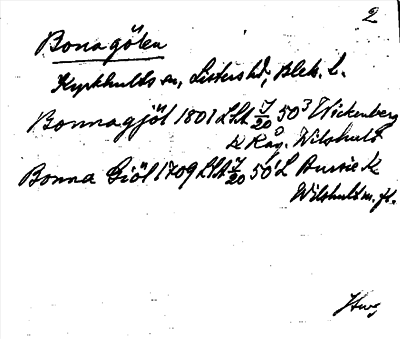 2
Bonagölen
Kyrkhults sn, Listers hd, Blek. l.
Bonnagjöl 1801 LSA 7/20 50³ Wickenberg
Kag. Wilshult
Bonna Giöl 1709 LSA 7/20 50¹ L Bussie K
Wilshults m. fl.